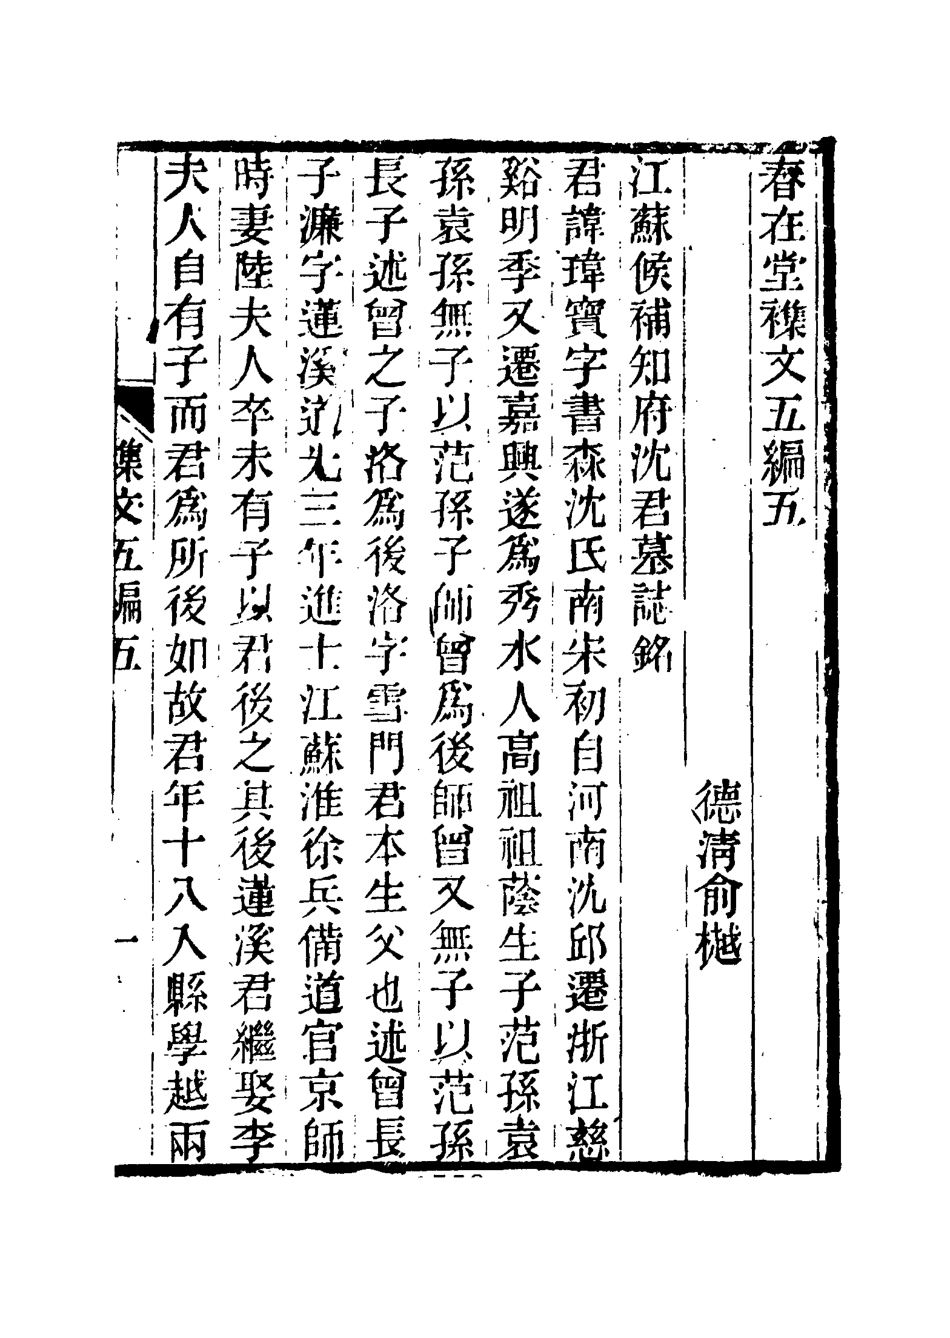 春在堂襍文五編五
德清俞樾
江蘇候補知府沈君墓誌銘
君諱瑋寶字書森沈氏南宋初自河南沈邱遷浙江慈
谿明季又遷嘉興遂爲秀水人高祖祖蔭生子范孫袁
孫袁孫無子以范孫子師曾爲後師曾又無子以范孫
長子述曾之子洛爲後洛字雪門君本生父也述曾長
子濂字蓮溪道光三年進士江蘇淮徐兵備道官京師
時妻陸夫人卒未有子以君後之其後蓮溪君繼娶李
夫人自有子而君爲所後如故君年十八入縣學越兩
集文五編五
一